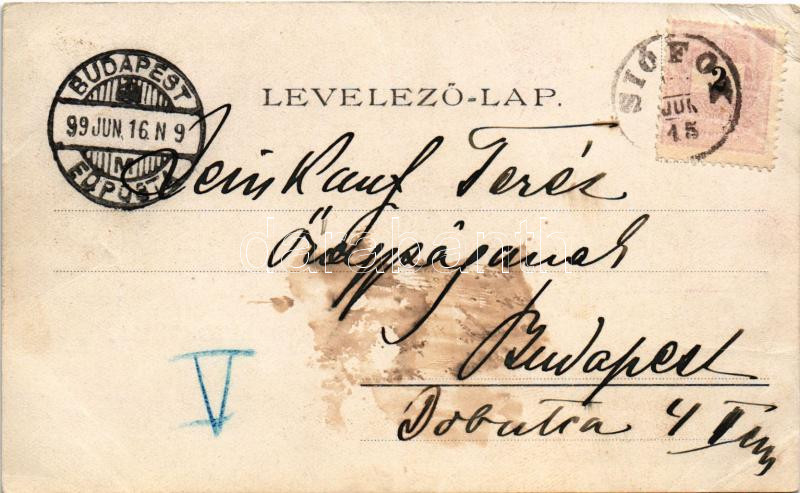 BUDAPEST
99 JUN. 16. N 9
N
LEVELEZŐ-LAP.
SIÓFOK
JUN
15
Weinkauf Teréz
Őnagyságának
Budapest
Dob utca 4 I em
V
darabanth